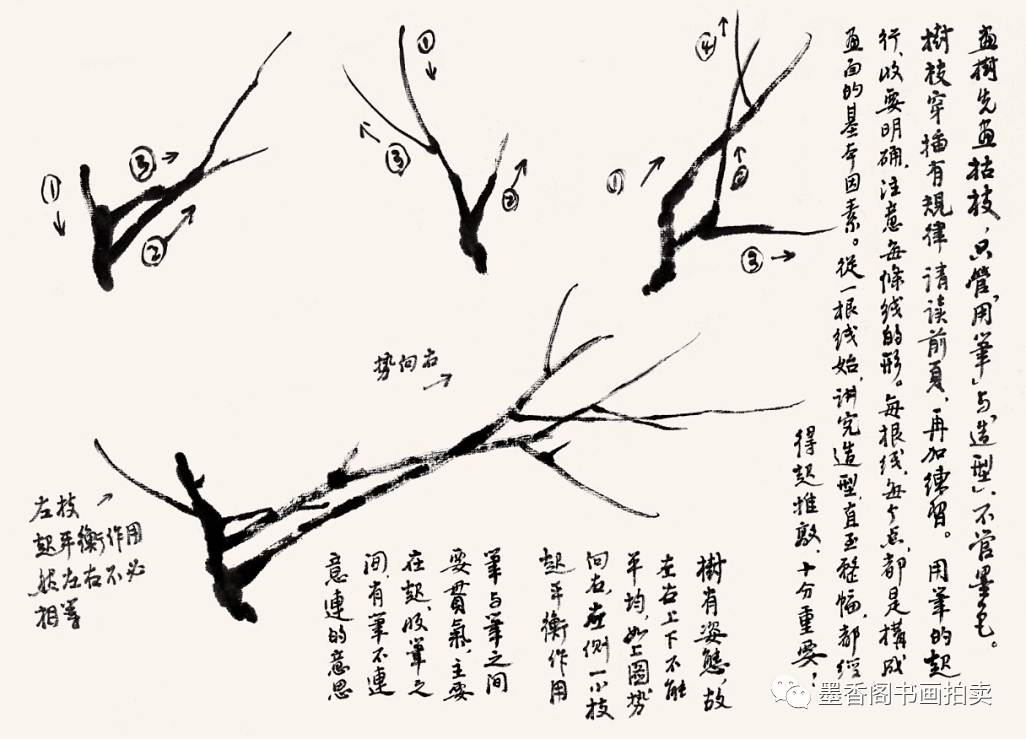 画樹先画枯枝，只管“用筆”与“造型”，不管墨色。
樹枝穿插有規律 請读前頁，再加練習。用筆的起
行、收要明确，注意每條线的形。每根线、每个点，都是構成
画面的基本因素。從一根线始，讲究造型，直至整幅，都經
得起推敲，十分重要；
① ↓
② ↗
③ →
① ↓
② ↗
③ ↖
① ↗
② ↑
③ →
④ ↑
势向右 →
樹有姿態，故
左右上下不能
平均，如上图势
向右，左侧一小枝
起平衡作用
筆与筆之间
要貫氣，主要
在起、收筆之
间，有筆不連
意連的意思
左枝
起平衡作用
然左右不必
相等
墨香阁书画拍卖